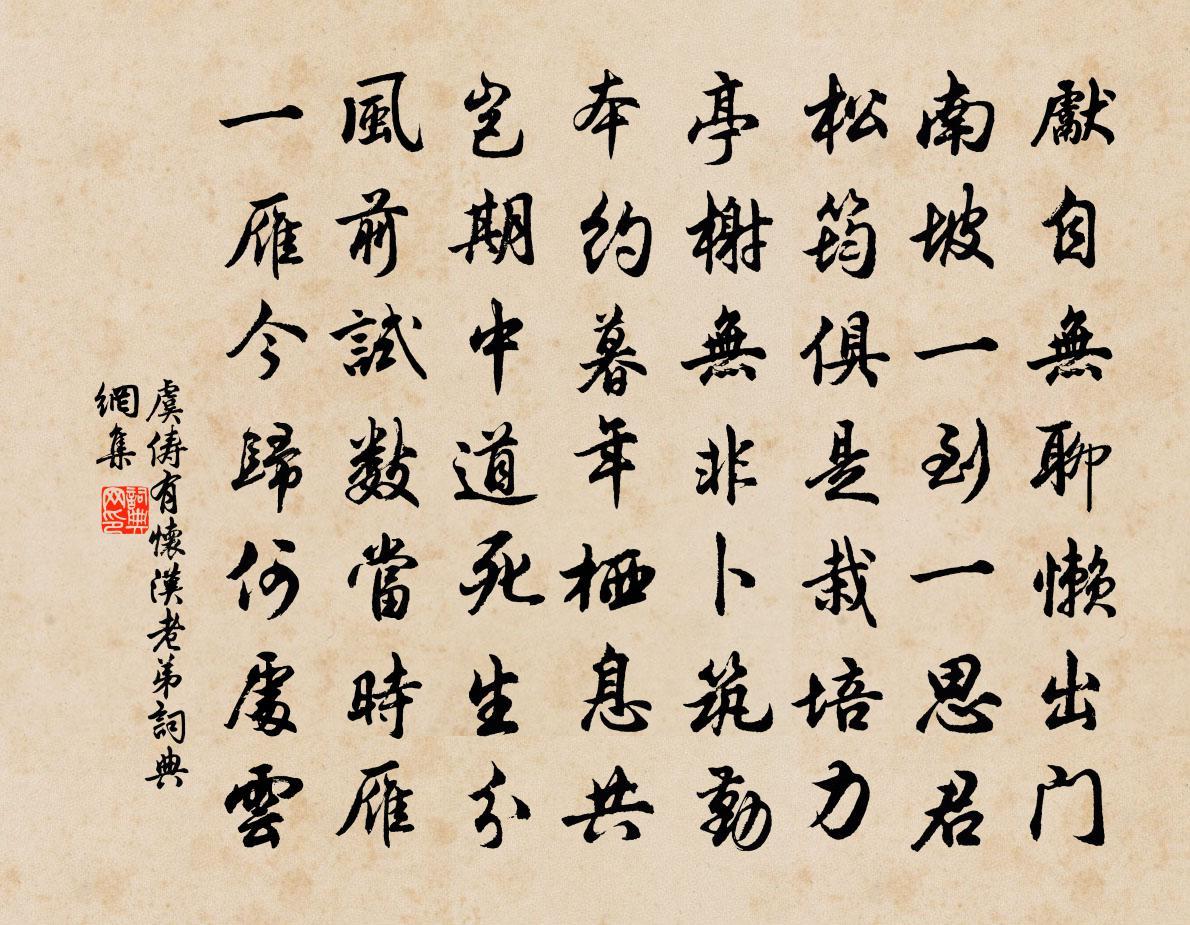 獻自無聊懶出门
南坡一到一思君
松筠俱是栽培力
亭榭無非卜筑勤
本约暮年栖息共
豈期中道死生分
風前試數當時雁
一雁今歸何處雲
虞儔有懷漢老弟詞典
網集
詞典
网印